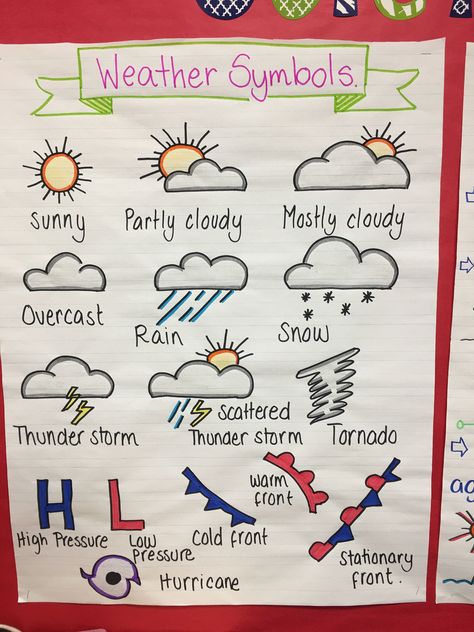 Weather Symbols.
Sunny
Partly cloudy
Mostly cloudy
Overcast
Rain
Snow
Thunder storm
Scattered
Thunder storm
Tornado
H
High Pressure
L
Low
Pressure
Cold front
warm
front
Stationary
front.
Hurricane